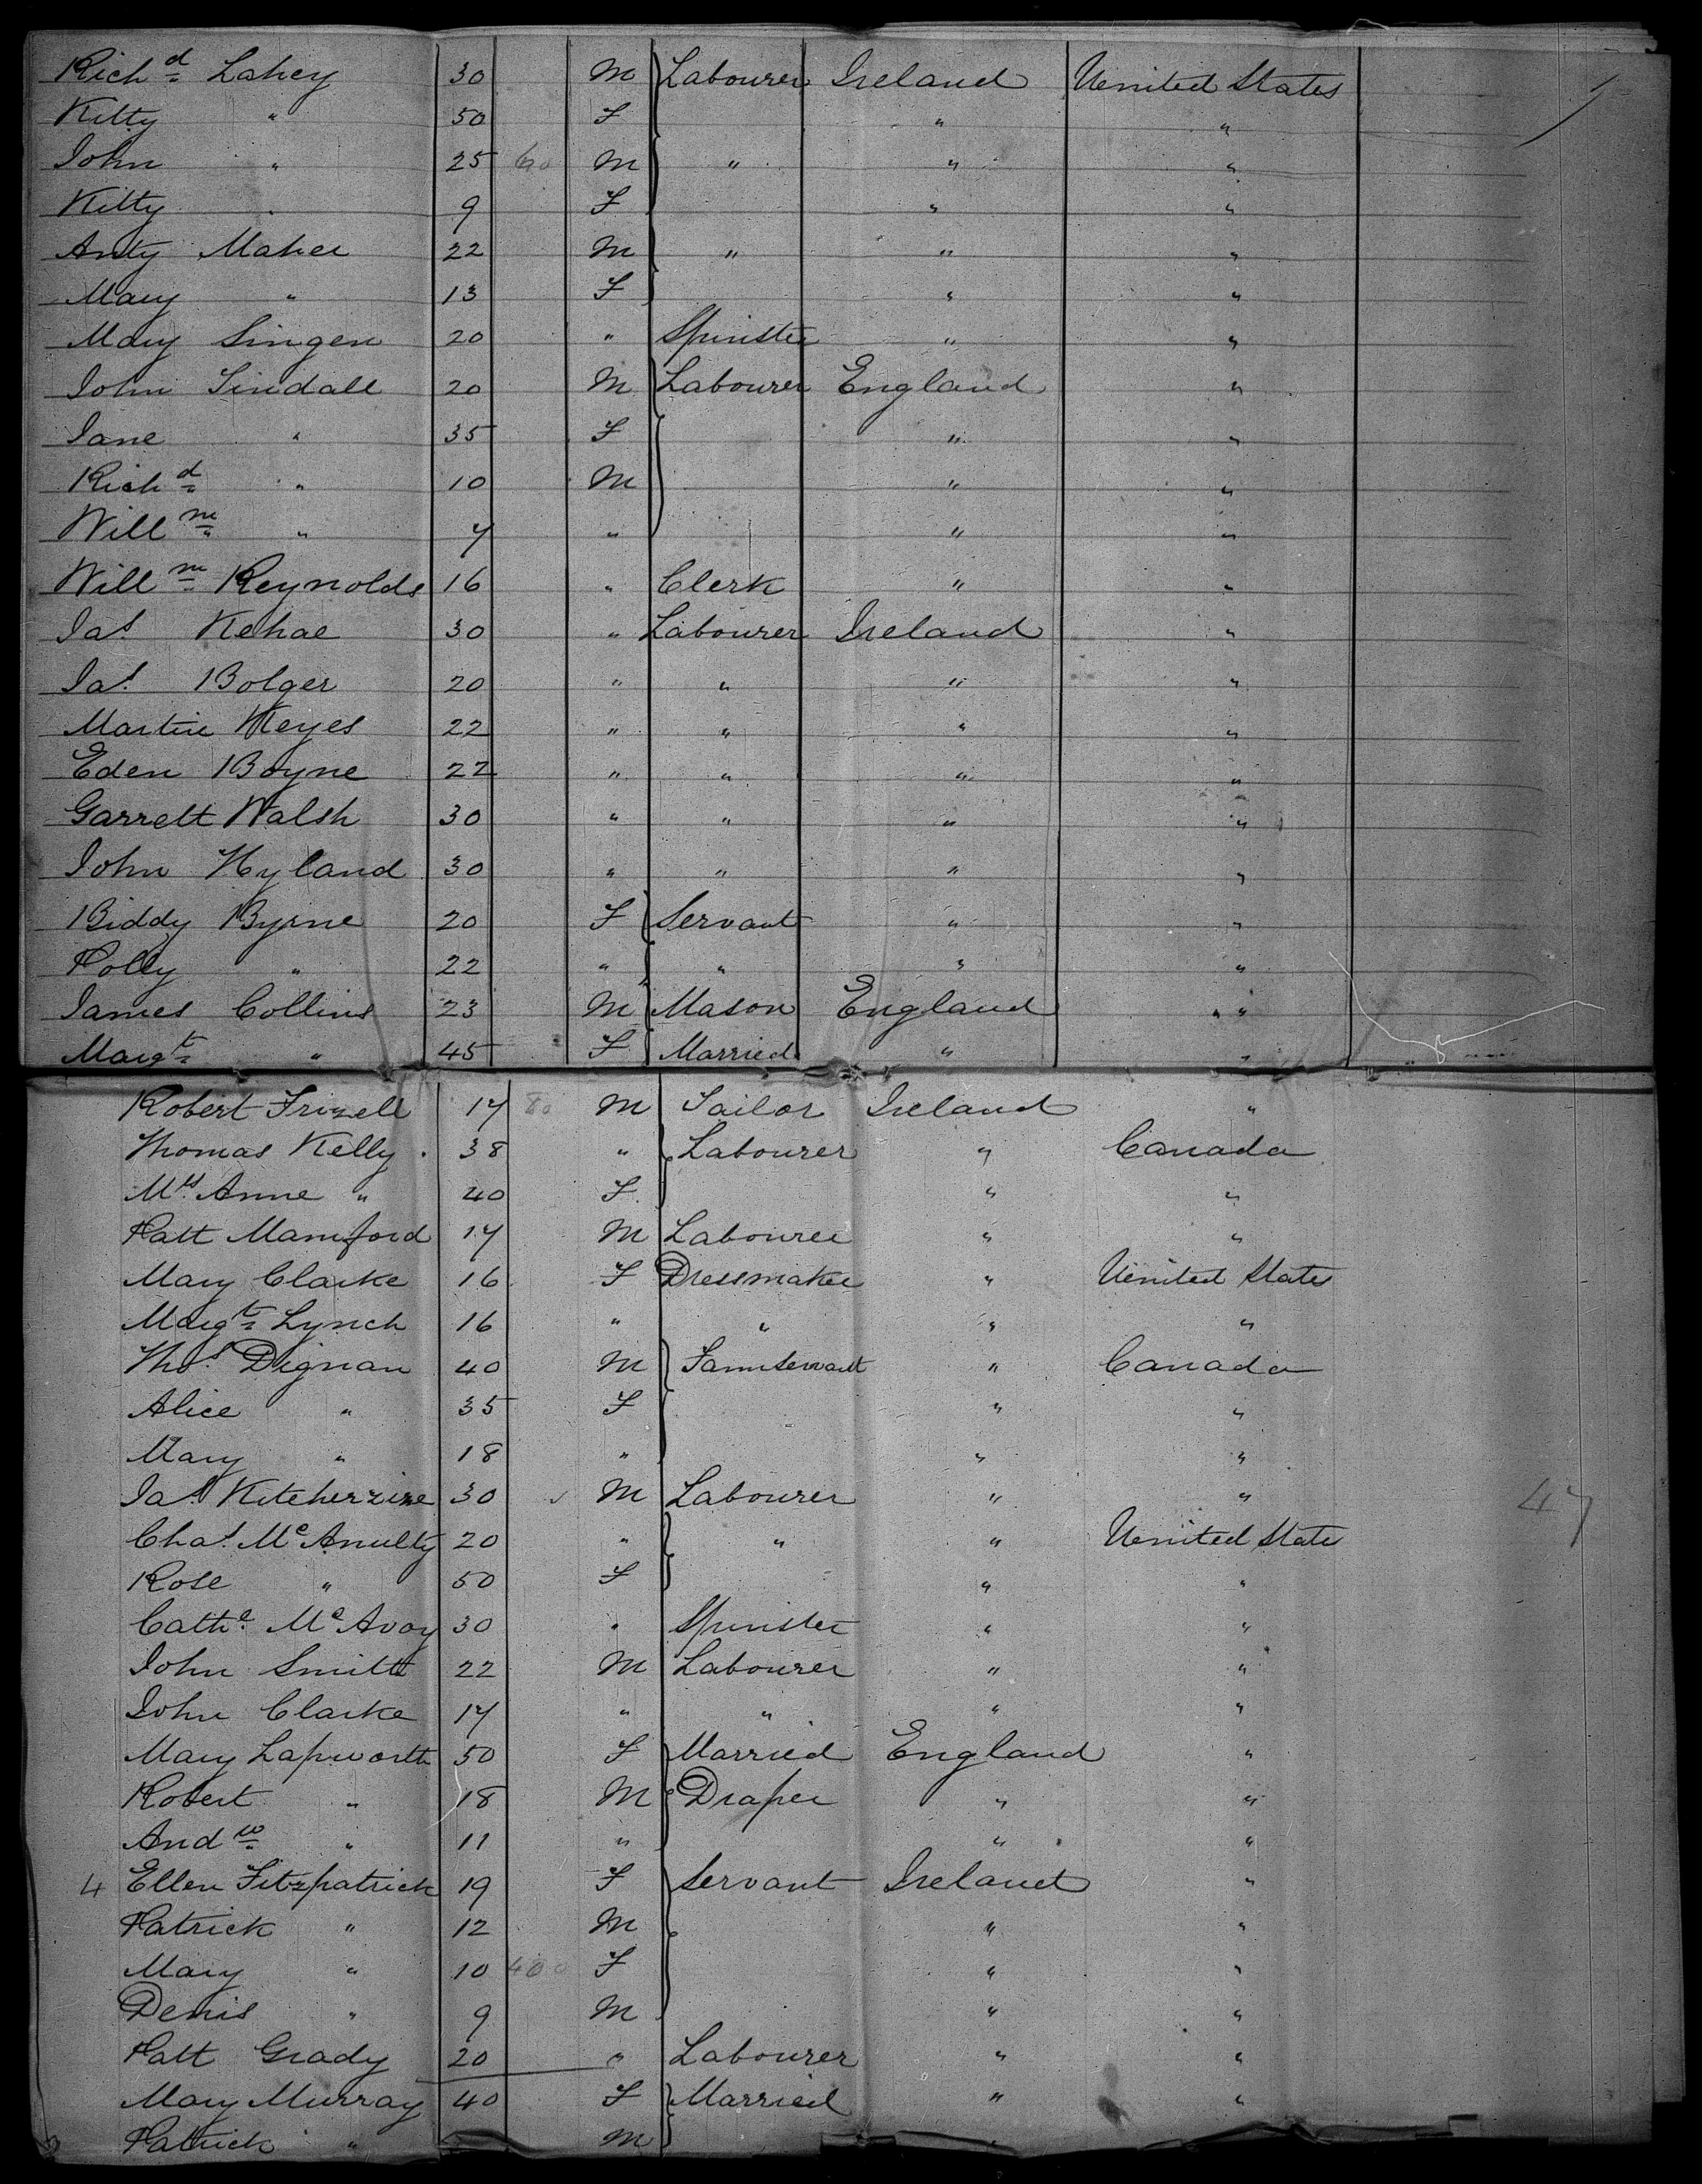 Richd Lahey 30 M Labourer Ireland United States
Kitty " 50 F " "
John " 25 60 M " " "
Kitty " 9 F " "
Anty Maher 22 M " " "
Mary " 13 F " "
Mary Singen 20 " Spinster " "
John Tindall 20 M Labourer England "
Jane " 35 F " "
Richd " 10 M " "
Willm " 7 " " "
Willm Reynolds 16 " Clerk " "
Jas Kehoe 30 " Labourer Ireland "
Jas Bolger 20 " " " "
Martin Keyes 22 " " " "
Eden Boyne 22 " " " "
Garrett Walsh 30 " " " "
John Hyland 30 " " " "
Biddy Byrne 20 F Servant " "
Polly " 22 " " " "
James Collins 23 M Mason England " "
Margt " 45 F Married " "
Robert Frizell 17 80 M Tailor Ireland "
Thomas Kelly 38 " Labourer " Canada
Mrs Anne " 40 F " "
Patt 17 M Labourer " "
Mary Clarke 16 F Dressmaker " United States
Margt Lynch 16 " " " "
Thos Dignan 40 M Farmservant " Canada
Alice " 35 F " "
Mary " 18 " " "
Jas 30 M Labourer " "
47
Chas McAnulty 20 " " " United States
Rose " 50 F " "
Cathe McAvoy 30 " Spinster " "
John Smith 22 M Labourer " "
John Clarke 17 " " " "
Mary Lapworth 50 F Married England "
Robert " 18 M Draper " "
Andw " 11 " " "
4 Ellen Fitzpatrick 19 F Servant Ireland "
Patrick " 12 M " "
Mary " 10 400 F " "
Denis " 9 M " "
Patt Grady 20 " Labourer " "
Mary Murray 40 F Married " "
Patrick " M